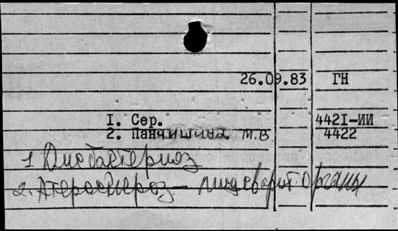 26.09.83 ГН
1. Сер. 4421-ИИ
2. Панчишина М.В 4422
1 Дисбактериоз
2. Атеросклероз - пищеварит. органы